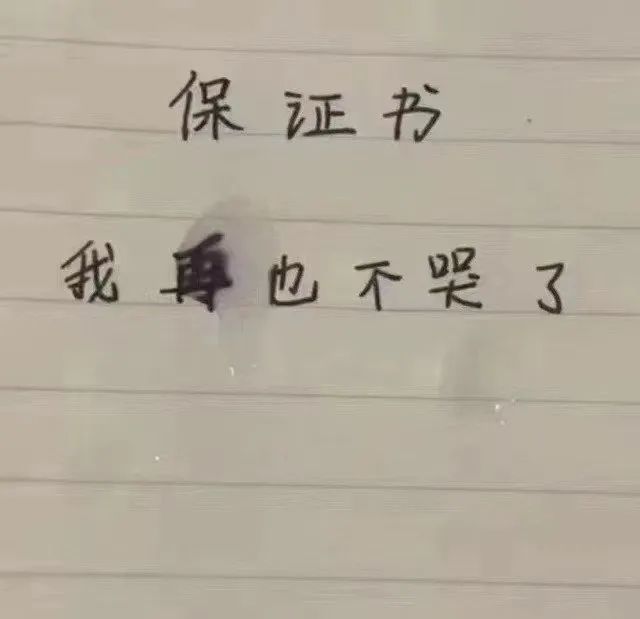 保证书
我再也不哭了